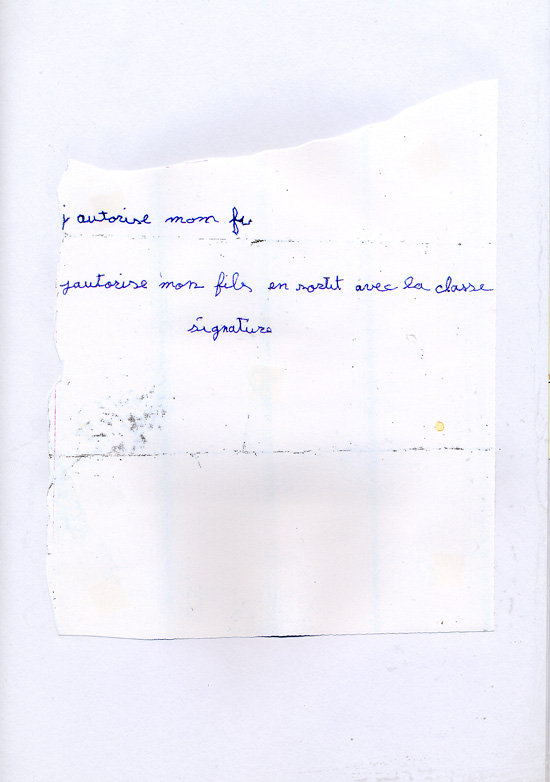 j autorise mom fi
jautorise mon fils en sortit avec la classe
signature